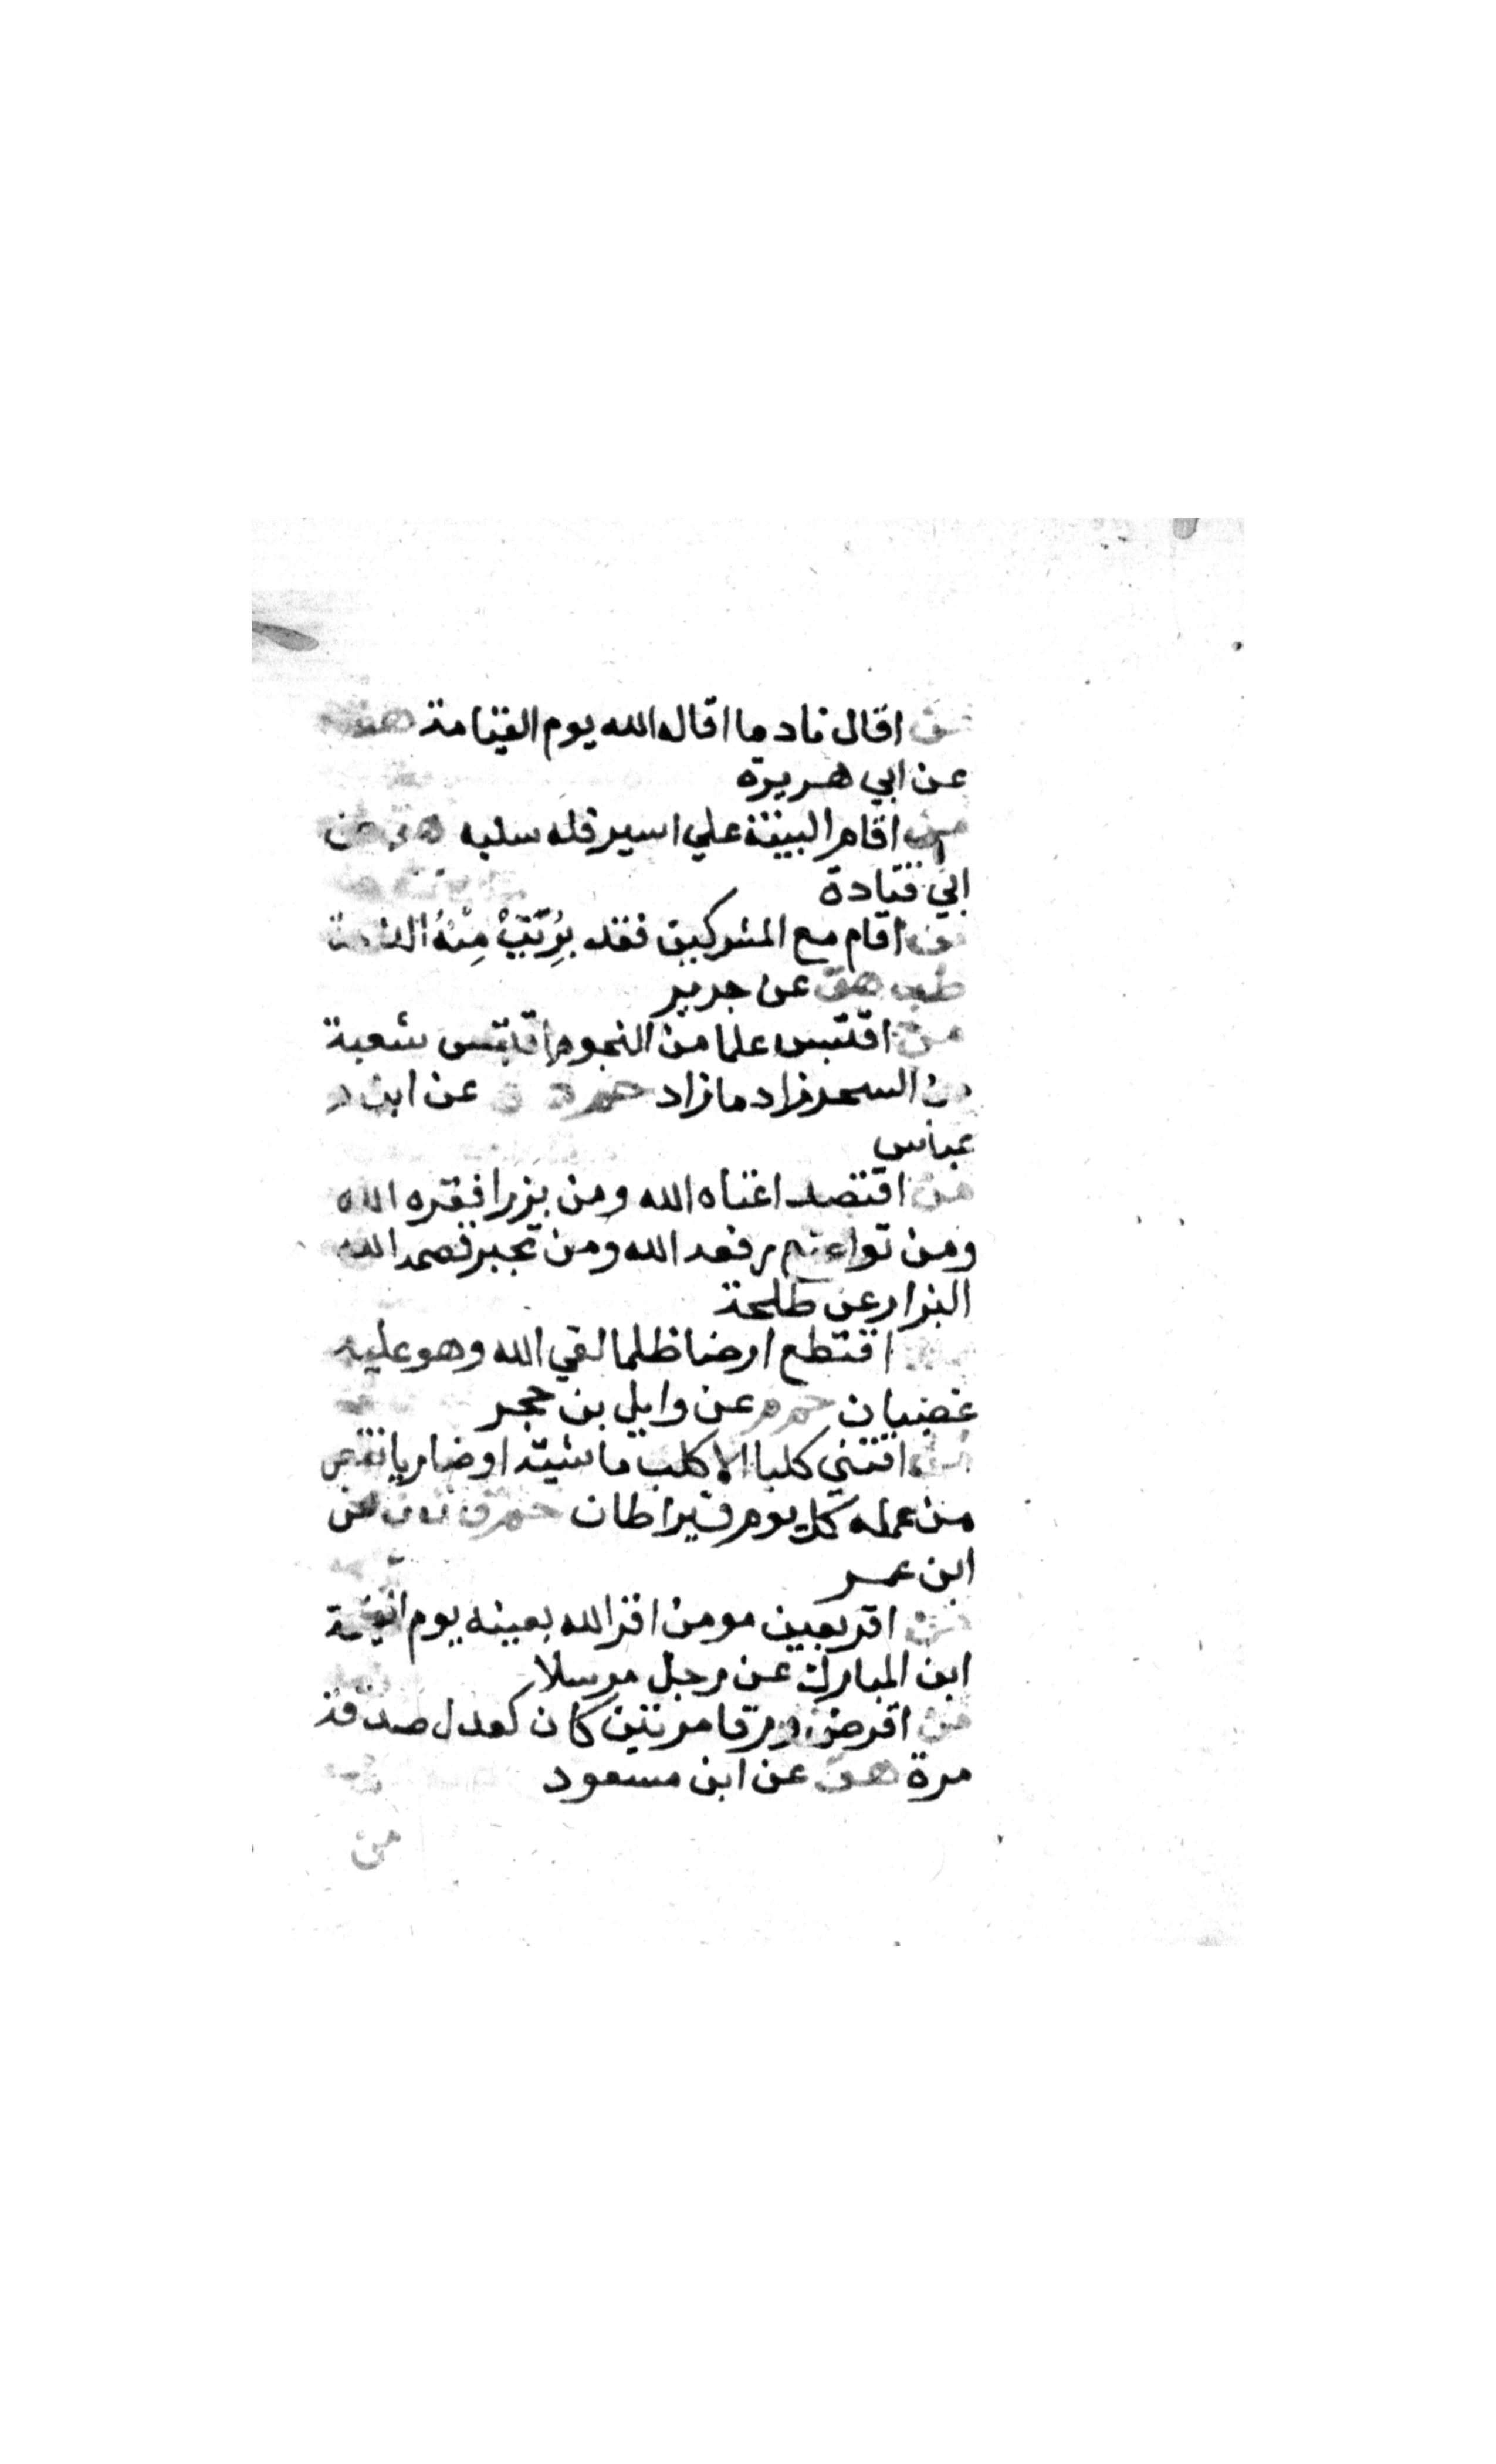 من اقال نادما اقاله الله يوم القيامة هق
عن ابي هريرة
من اقام البينة علي اسير فله سلبه هق عن
ابي قتادة
من اقام مع المشركين فقد بَرِئَتْ مِنْهُ الذمة
طب هق عن جرير
من اقتبس علما من النجوم اقتبس شعبة
من السحر زاد ما زاد حم د عن ابن
عباس
من اقتصد اغناه الله ومن بزر افقره الله
ومن تواضع رفعه الله ومن تجبر قصمه الله
البزار عن طلحة
اقتطع ارضا ظلما لقي الله وهو عليه
غضبان حم م عن وايل بن حجر
من اقتني كلبا الا كلب ماشية او ضاريا نقص
من عمله كل يوم قيراطان حم ق ت ن عن
ابن عمر
من اقر بعين مومن اقر الله بعينه يوم القيمة
ابن المبارك عن رجل مرسلا
من اقرض ورقا مرتين كان كعدل صدقة
مرة هق عن ابن مسعود
من